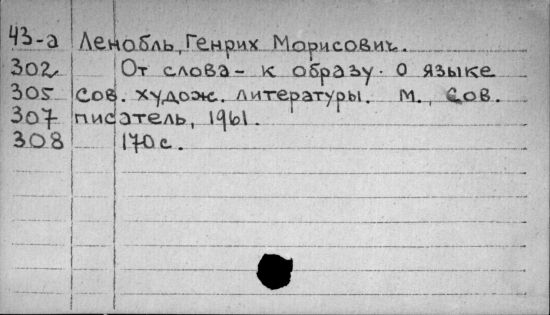 43-а Ленобль, Генрих Морисович.
302 От слова - к образу. О языке
305 сов. худож. литературы. М., Сов.
307 писатель, 1961.
308 170 с.